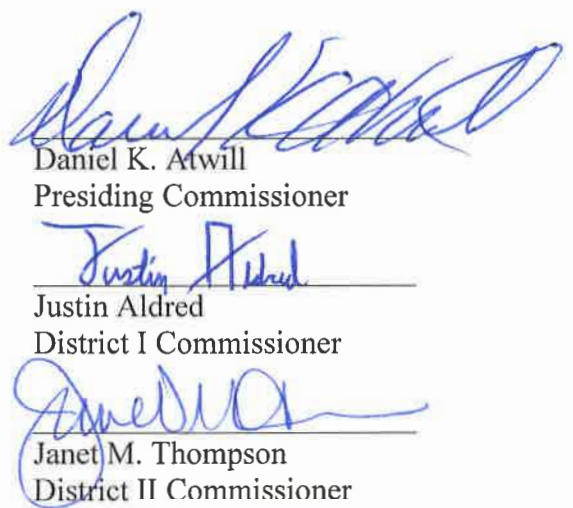 Daniel K. Atwill
Presiding Commissioner
Justin Aldred
Justin Aldred
District I Commissioner
Janet M. Thompson
District II Commissioner